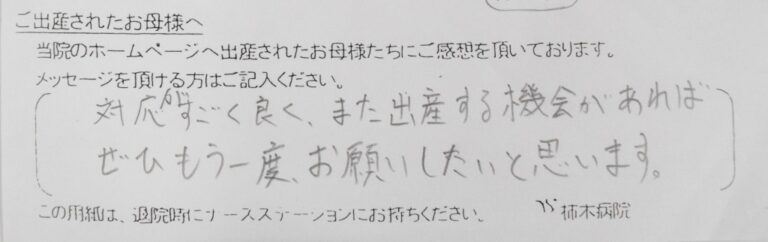 ご出産されたお母様へ
当院のホームページへ出産されたお母様たちにご感想を頂いております。
メッセージを頂ける方はご記入ください。
対応がすごく良く、また出産する機会があれば
ぜひもう一度、お願いしたいと思います。
この用紙は、退院時にナースステーションにお持ちください。 柿木病院